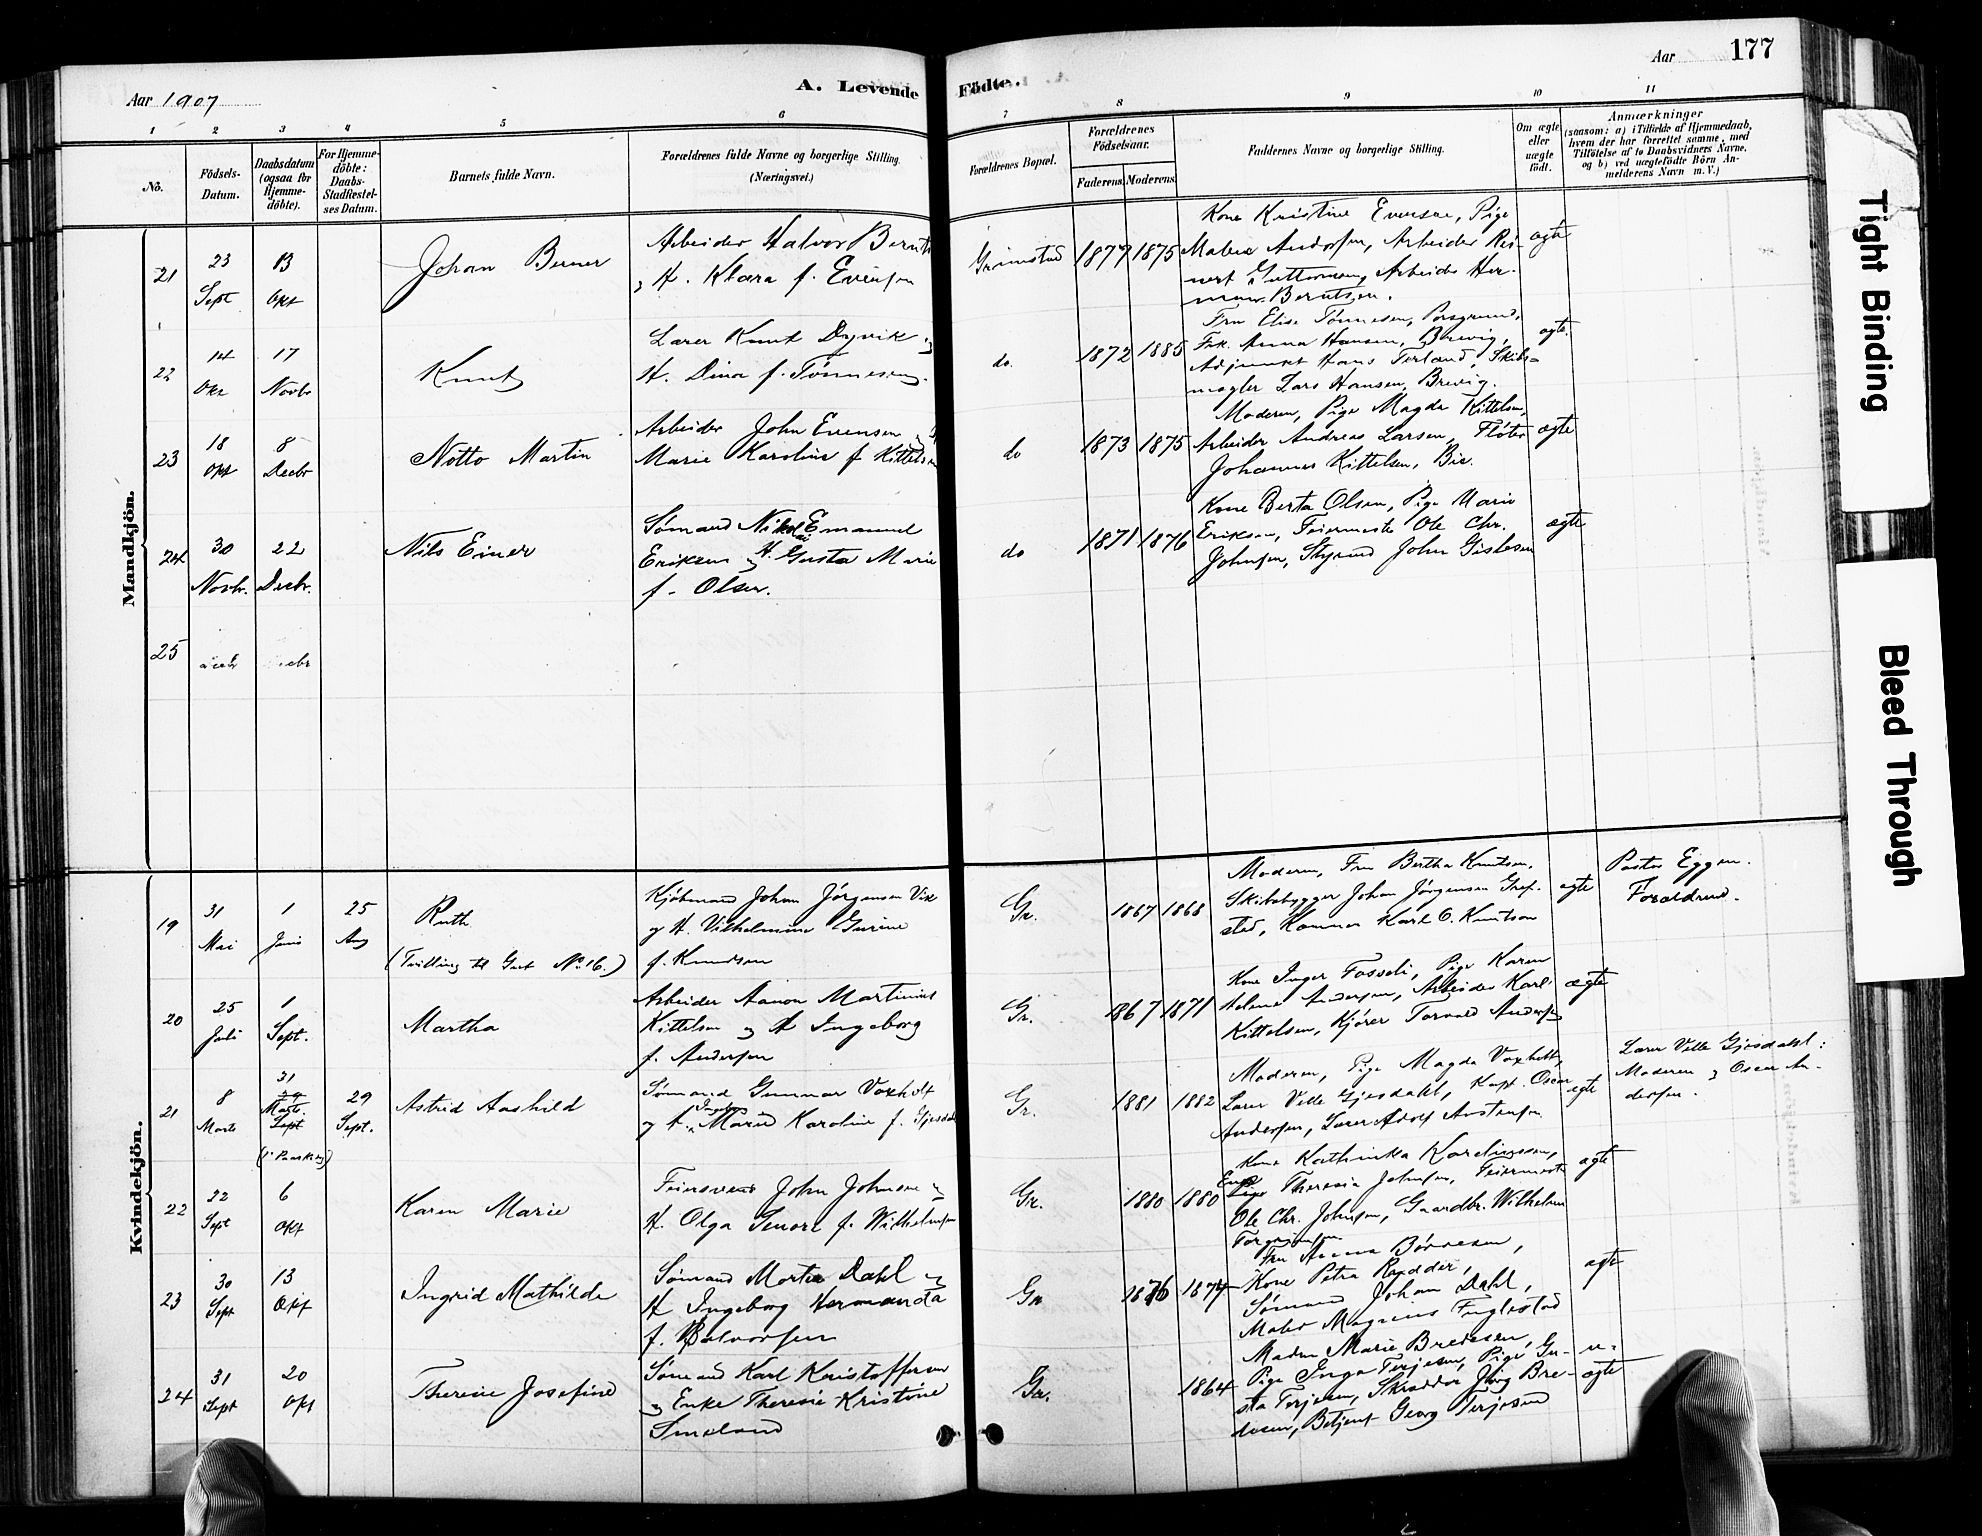 Aar 1907
A. Levende
Födte.
Aar
177
1 2 3 4 5 6 7 8 9 10 11
No.
Födsels-
Datum.
Daabsdatum
(ogsaa for
Hjemme-
döbte).
For Hjemme-
döbte:
Daabs-
Stadfæstel-
ses Datum.
Barnets fulde Navn.
Forældrenes fulde Navne og borgerlige Stilling.
(Næringsvei.)
Forældrenes Bopæl.
Forældrenes
Födselsaar.
Faderens. Moderens.
Faddernes Navne og borgerlige Stilling.
Om ægte
eller
uægte
födt.
Anmærkninger
(saasom: a) i Tilfælde af Hjemmedaab,
hvem der har forrettet samme, med
Tilföielse af to Daabsvidners Navne,
og b) ved uægtefödte Börn An-
melderens Navn m.V.)
Mandkjön.
21
23
Sept
13
Okt
Johan Berner
Arbeider Halvor Bernts
H. Klara f. Evensen
Grimstad
1877 1875
Kone Kristine Evensen, Pige
Andersen, Arbeider Rei-
nert Guttormsen, Arbeider Her-
man Berntsen.
ægte
22
14
Okt
17
Novbr
Knut
Lærer Knut Dyvik og
H. Dina f. Tönnesen.
do.
1872 1885
Fru Elise Tönnesen, Porsgrund,
Frk. Anna Hansen, Brevig,
Adjunkt Hans Terland, Skibs-
mægler Lars Hansen, Brevig.
ægte
23
18
Okt
8
Decbr
Notto Martin
Arbeider John Evensen og H
Marie Karoline f. Kittelsen
do
1873 1875
Moderen, Pige Magda Kittelsen,
Arbeider Andreas Larsen, Fløter
Johannes Kittelsen, Bie.
ægte
24
30
Novbr.
22
Decbr.
Nils Einer
Sømand Nikolai Emanuel
Eriksen og H. Gusta Marie
f. Olsen.
do
1871 1876
Kone Berta Olsen, Pige Marie
Eriksen, Feiermester Ole Chr.
Johnsen, Styrmd John Gislesen
ægte
25
Decbr
Decbr
Kvindekjön.
19
31
Mai
1
Juni
25
Aug
Ruth
(Tvilling til Gut No 16.)
Kjöbmand Johan Jörgensen Vik
og H. Vilhelmine Gurine
f. Knudsen
Gr.
1867 1868
Moderen, Fru Bertha Knutson,
Skibsbygger Johan Jörgensen Gref-
stad, Karl O. Knutson
ægte
Pastor Eggen.
Forældrene.
20
25
Juli
1
Sept.
Martha
Arbeider Aanon Martinius
Kittelsen og H Ingeborg
f. Andersen
Gr.
1867 1871
Kone Inger Fosseli, Pige Karen
Helene Andersen, Arbeider Karl
Kittelsen, Kjører Torvald Andersen
ægte
21
8
Marts
31
Mart.
Sept
(i Paasken)
29
Sept.
Astrid Aashild
Sømand Gunnar Voxholt
og H. Inga Marie Karoline f. Gjesdal
Gr.
1881 1882
Moderen, Pige Magda Voxholt,
Lærer Ville Gjesdahl, Kapt. Oscar
Andersen, Lærer Adolf Austensen
ægte
Lærer Ville Gjesdahl:
Moderen og Oscar An-
dersen.
22
22
Sept
6
Okt
Karen Marie
Feiersvend John Johnsen og
H. Olga Senore f. Wilhelmsen
Gr.
1880 1880
Kone Kathinka Karliussen,
Enke Theresia Johnsen, Feiermester
Ole Chr. Johnsen, Gaardbr. Wilhelm
Torgrimsen
ægte
23
30
Sept
13
Okt
Ingrid Mathilde
Sømand Morten Dahl og
H Ingeborg Hermanda
f. Halvorsen
Gr
1876 1874
Fru Anna Börresen,
Kone Petra Rødder,
Sömand Johan Dahl,
Maler Magnus Fuglestad
ægte
24
31
Sept
20
Okt
Therese Josefine
Sømand Karl Kristoffersen
og Enke Theresie Kristine
Smeland
Gr.
1864
Madm Marie Bredesen,
Pige Inga Terjesen, Pige Gu-
sta Terjesen, Skrædder Jörg Bre-
desen, Betjent Georg Terjesen
u-
ægte
Tight Binding
Bleed Through